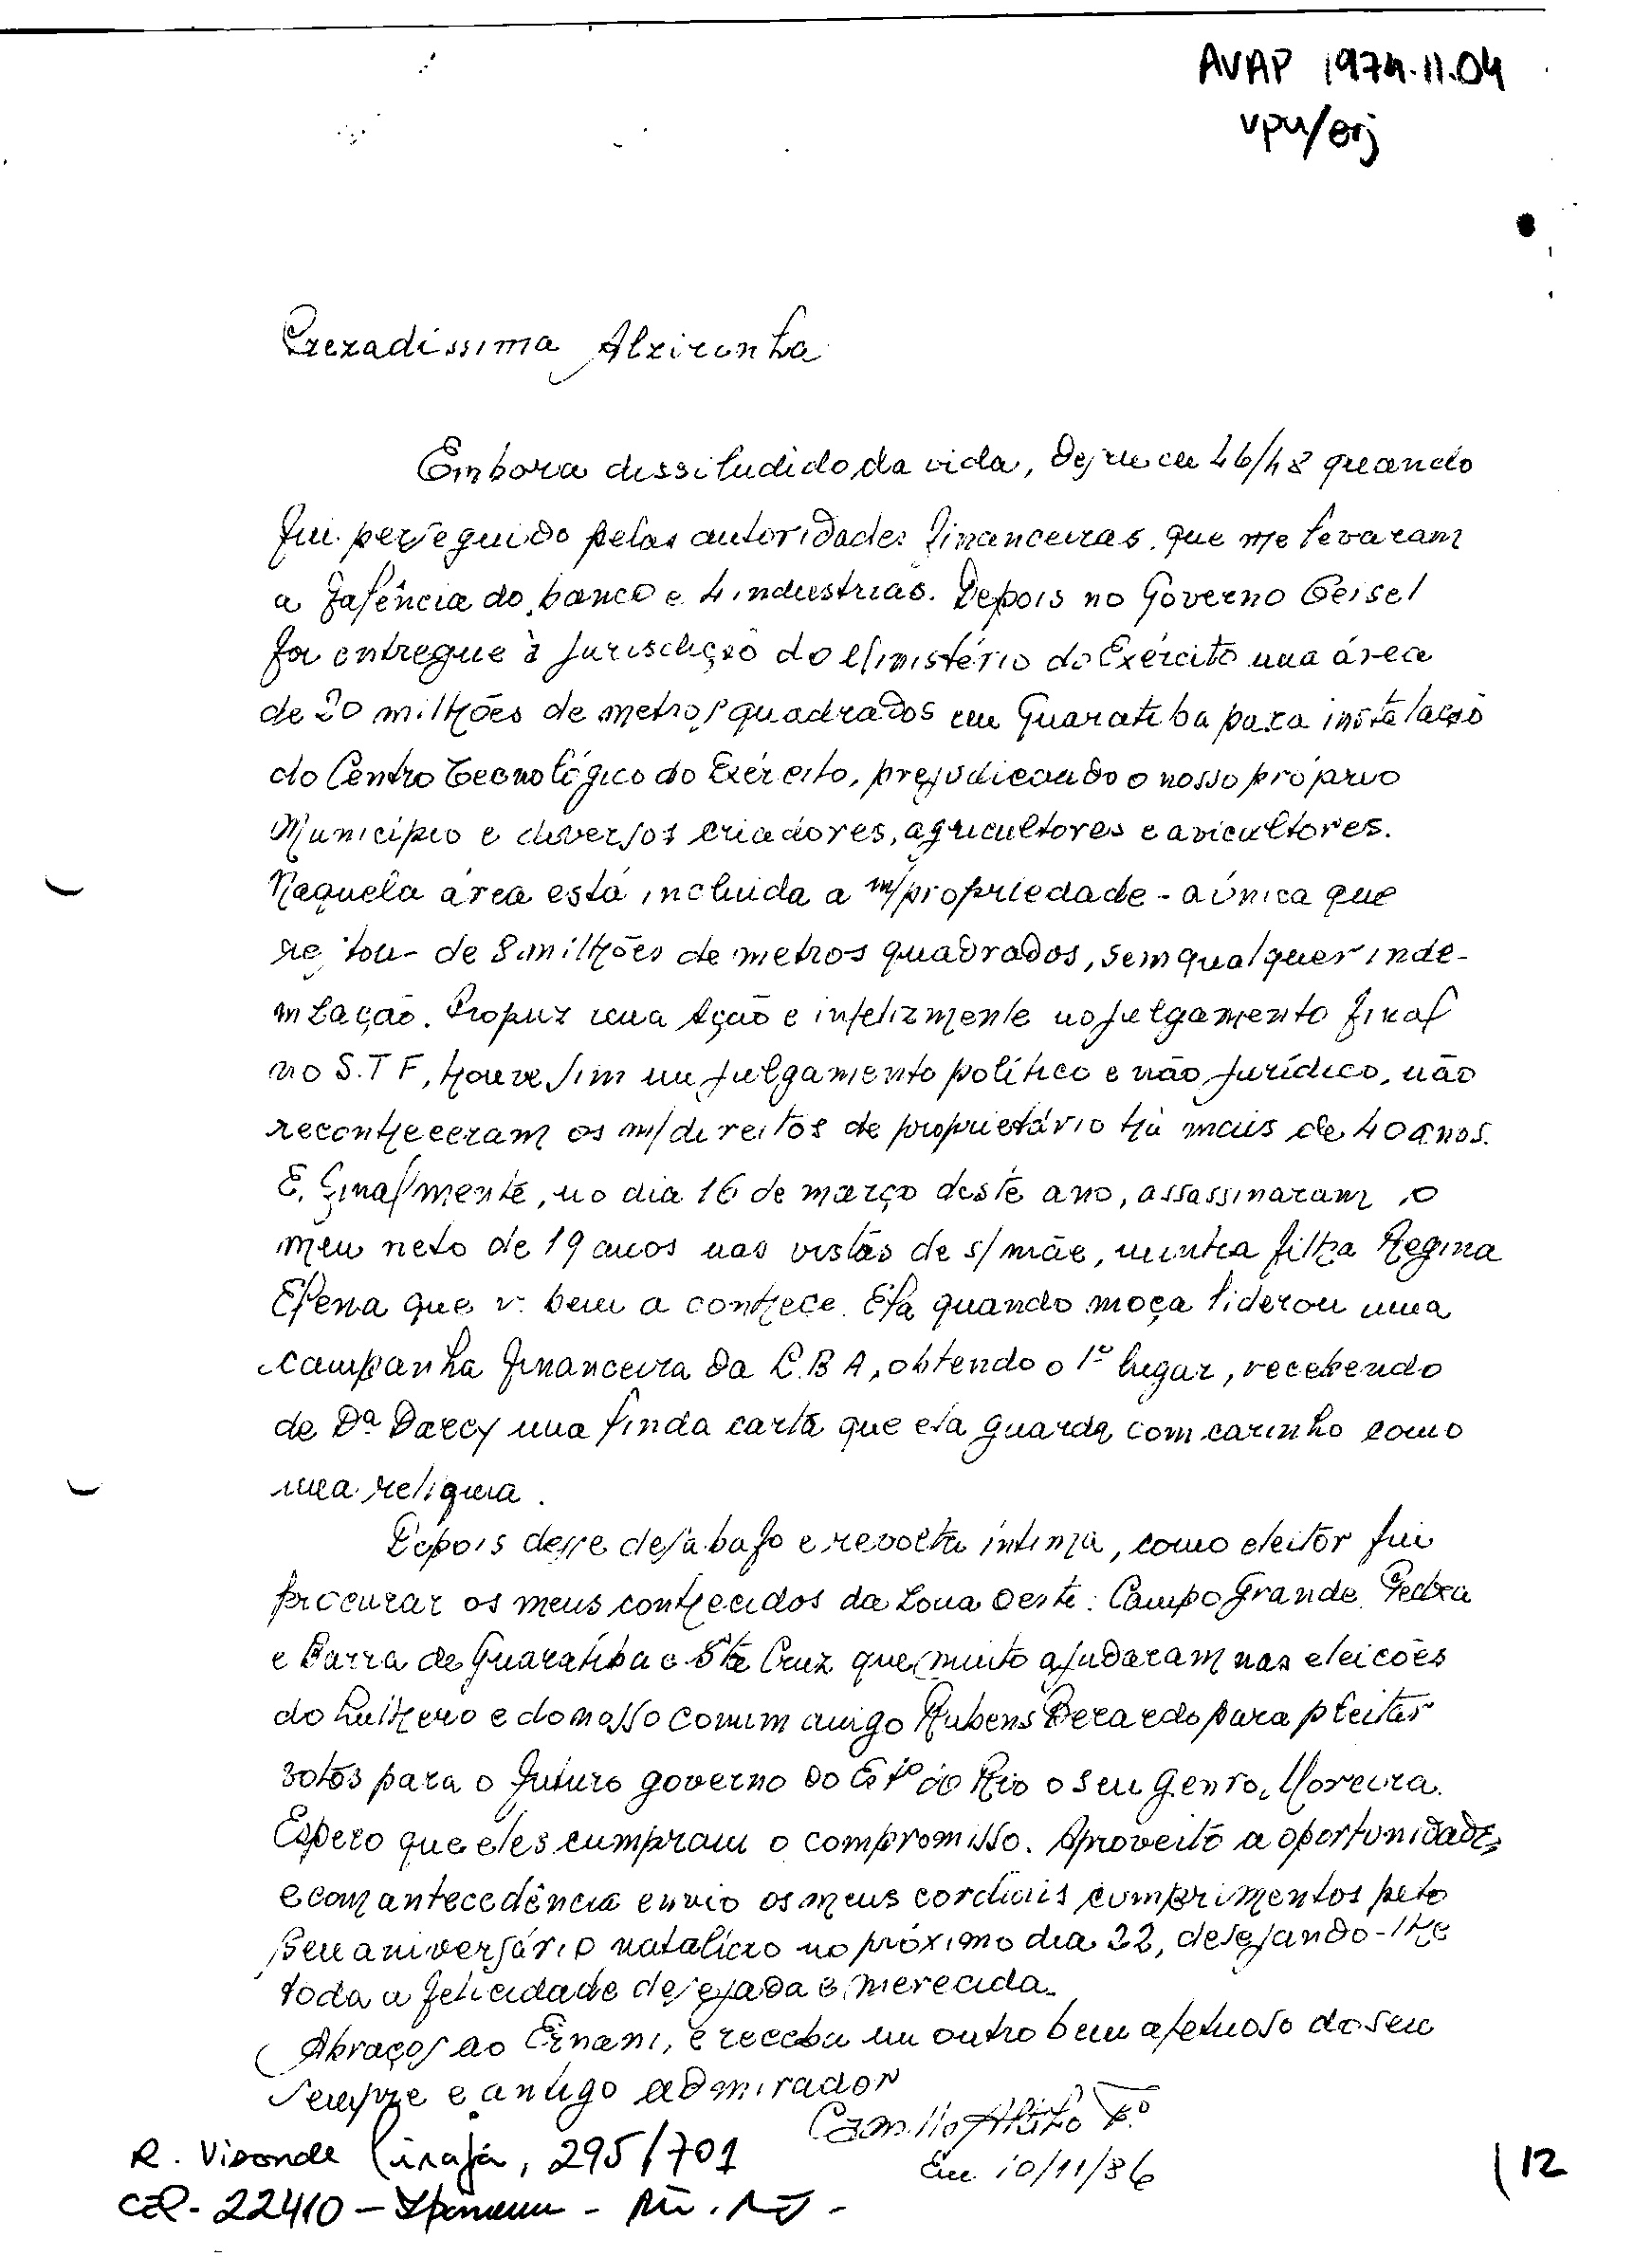 AVAP 1974.11.04
vpu/erj
Prezadissima Alzirinha
Embora dessiludido da vida, em 46/48 quando
fui perseguido pelas autoridades financeiras, que me levaram
a falência do banco e 4 industrias. Depois no Governo Geisel
foi entregue à jurisdição do Ministério do Exército uma área
de 20 milhões de metros quadrados em Guaratiba para instalação
do Centro Tecnológico do Exército, prejudicando o nosso próprio
Município e diversos criadores, agricultores e avicultores.
Naquela área está incluida a m/propriedade - a única que
restou - de 8 milhões de metros quadrados, sem qualquer inde-
nização. Propuz uma Ação e infelizmente no julgamento final
no S.T F, houve sim um julgamento político e não jurídico, não
reconheceram os m/direitos de proprietário há mais de 40 anos.
E, finalmente, no dia 16 de março deste ano, assassinaram o
meu neto de 19 anos nas vistas de s/ mãe, minha filha Regina
Elena que v. bem a conhece. Ela quando moça liderou uma
campanha financeira da L.B A, obtendo o 1º lugar, recebendo
de Dª Darcy uma linda carta que ela guarda com carinho como
uma reliquia.
Depois desse desabafo e revolta íntima, como eleitor fui
procurar os meus conhecidos da Zona Oeste: Campo Grande, Pedra
e Barra de Guaratiba e Sta Cruz que muito ajudaram nas eleicões
do Luthero e do nosso comum amigo Rubens Berardo para pleitar
votos para o futuro governo do Estº do Rio o seu genro, Moreira.
Espero que eles cumpram o compromisso. Aproveito a oportunidade,
e com antecedência envio os meus cordiais cumprimentos pelo
seu aniversário natalício no próximo dia 22, desejando-lhe
toda a felicidade desejada e merecida.
Abraços ao Ernani, e receba um outro bem afetuoso do seu
sempre e antigo admirador
Camillo Fº
Em 10/11/86
R. Visconde Pirajá, 295/701
CEP- 22410 - Ipanema - Rio. RJ -
12